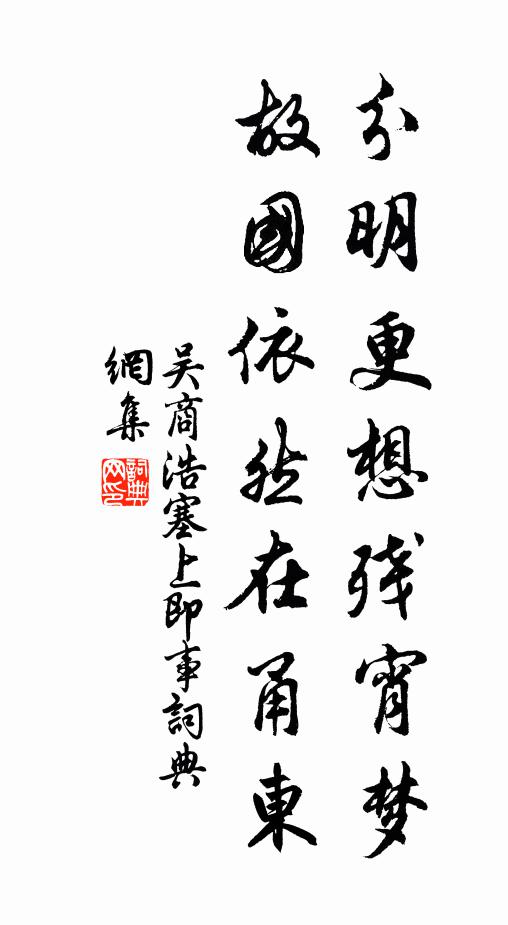 分明更想残宵梦
故國依然在甬東
吴商浩塞上即事詞典
網集
詞典
网印